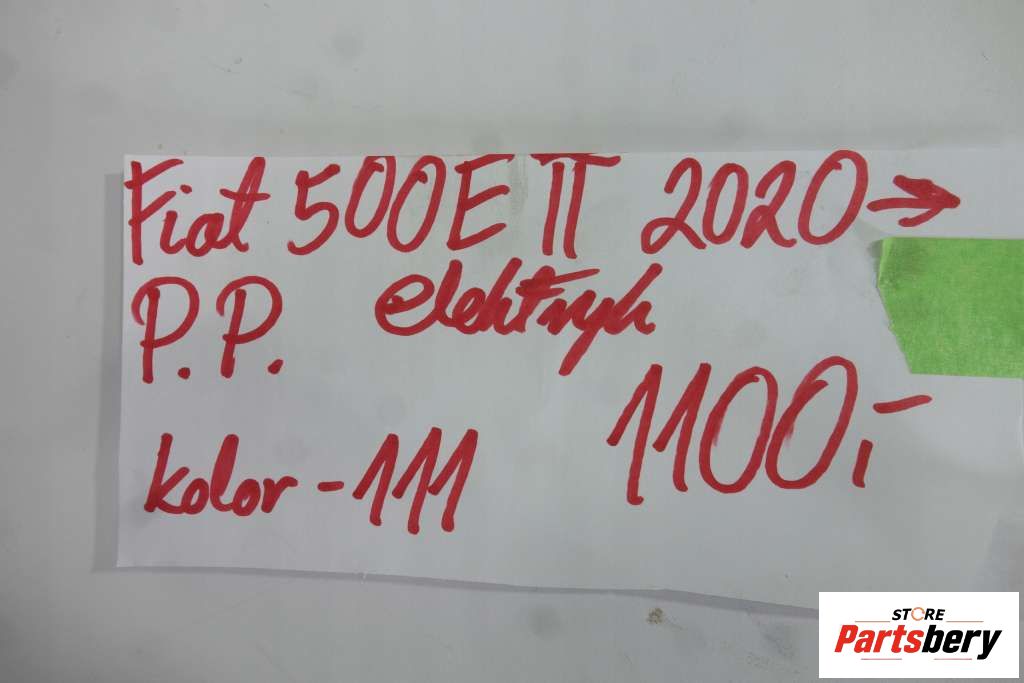 Fiat 500E II 2020→
P.P. elektryk
1100,-
kolor - 111
STORE
Partsbery